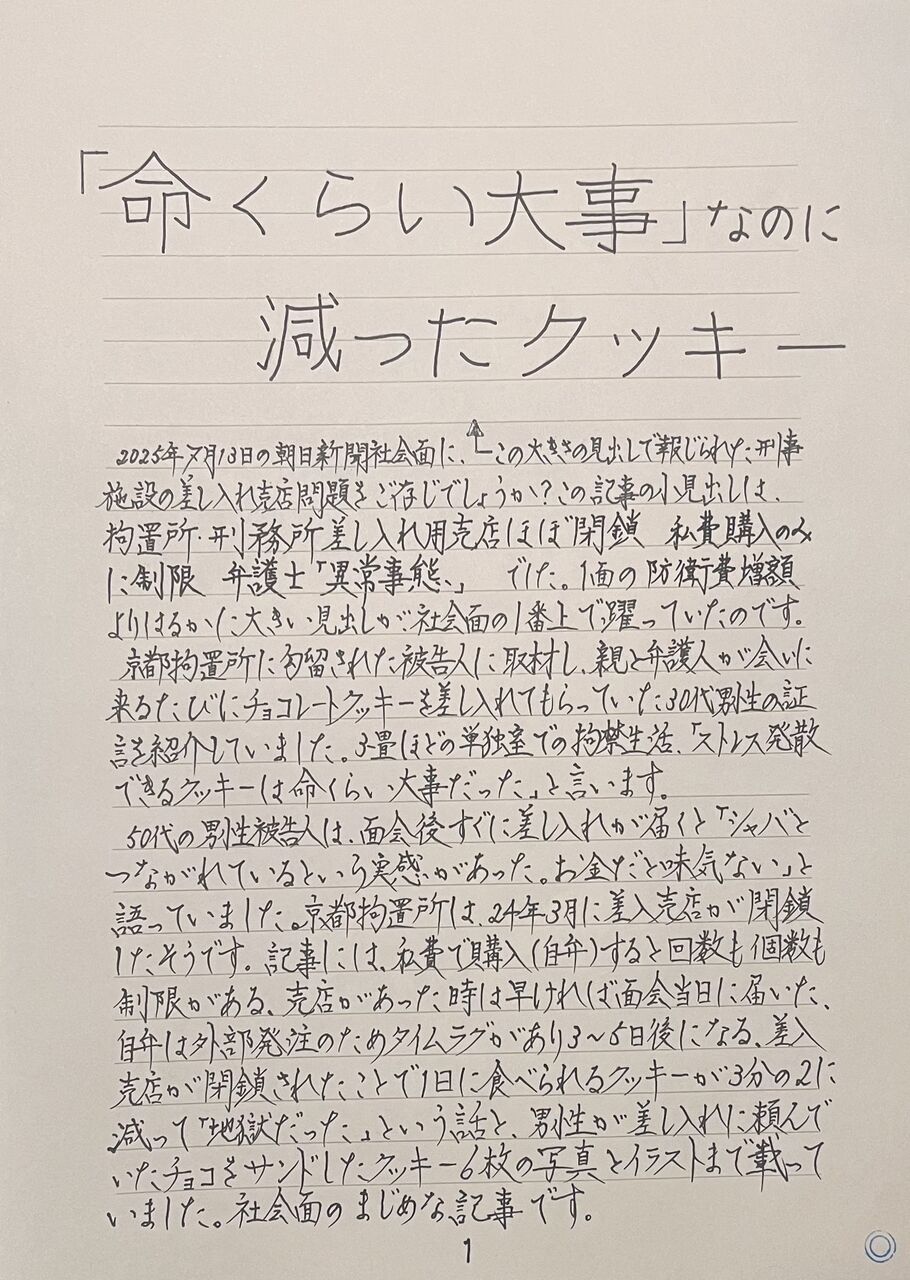 「命くらい大事」なのに
減ったクッキー
2025年7月13日の朝日新聞社会面に、この大きさの見出しで報じられた刑事
施設の差し入れ売店問題をご存じでしょうか?この記事の小見出しは、
拘置所・刑務所差し入れ用売店ほぼ閉鎖 私費購入のみ
に制限 弁護士「異常事態」 でした。1面の防衛費増額
よりはるかに大きい見出しが社会面の1番上で躍っていたのです。
京都拘置所に勾留された被告人に取材し、親と弁護人が会いに
来るたびにチョコレートクッキーを差し入れてもらっていた30代男性の証
言を紹介していました。3畳ほどの単独室での拘禁生活、「ストレス発散
できるクッキーは命くらい大事だった」と言います。
50代の男性被告人は、面会後すぐに差し入れが届くと「シャバと
つながれているという実感があった。お金だと味気ない」と
語っていました。京都拘置所は、24年3月に差入売店が閉鎖
したそうです。記事には、私費で購入(自弁)すると回数も個数も
制限がある、売店があった時は早ければ面会当日に届いた、
自弁は外部発注のためタイムラグがあり3～5日後になる、差入
売店が閉鎖されたことで1日に食べられるクッキーが3分の2に
減って「地獄だった」という話と、男性が差し入れに頼んで
いたチョコをサンドしたクッキー6枚の写真とイラストまで載って
いました。社会面のまじめな記事です。
1